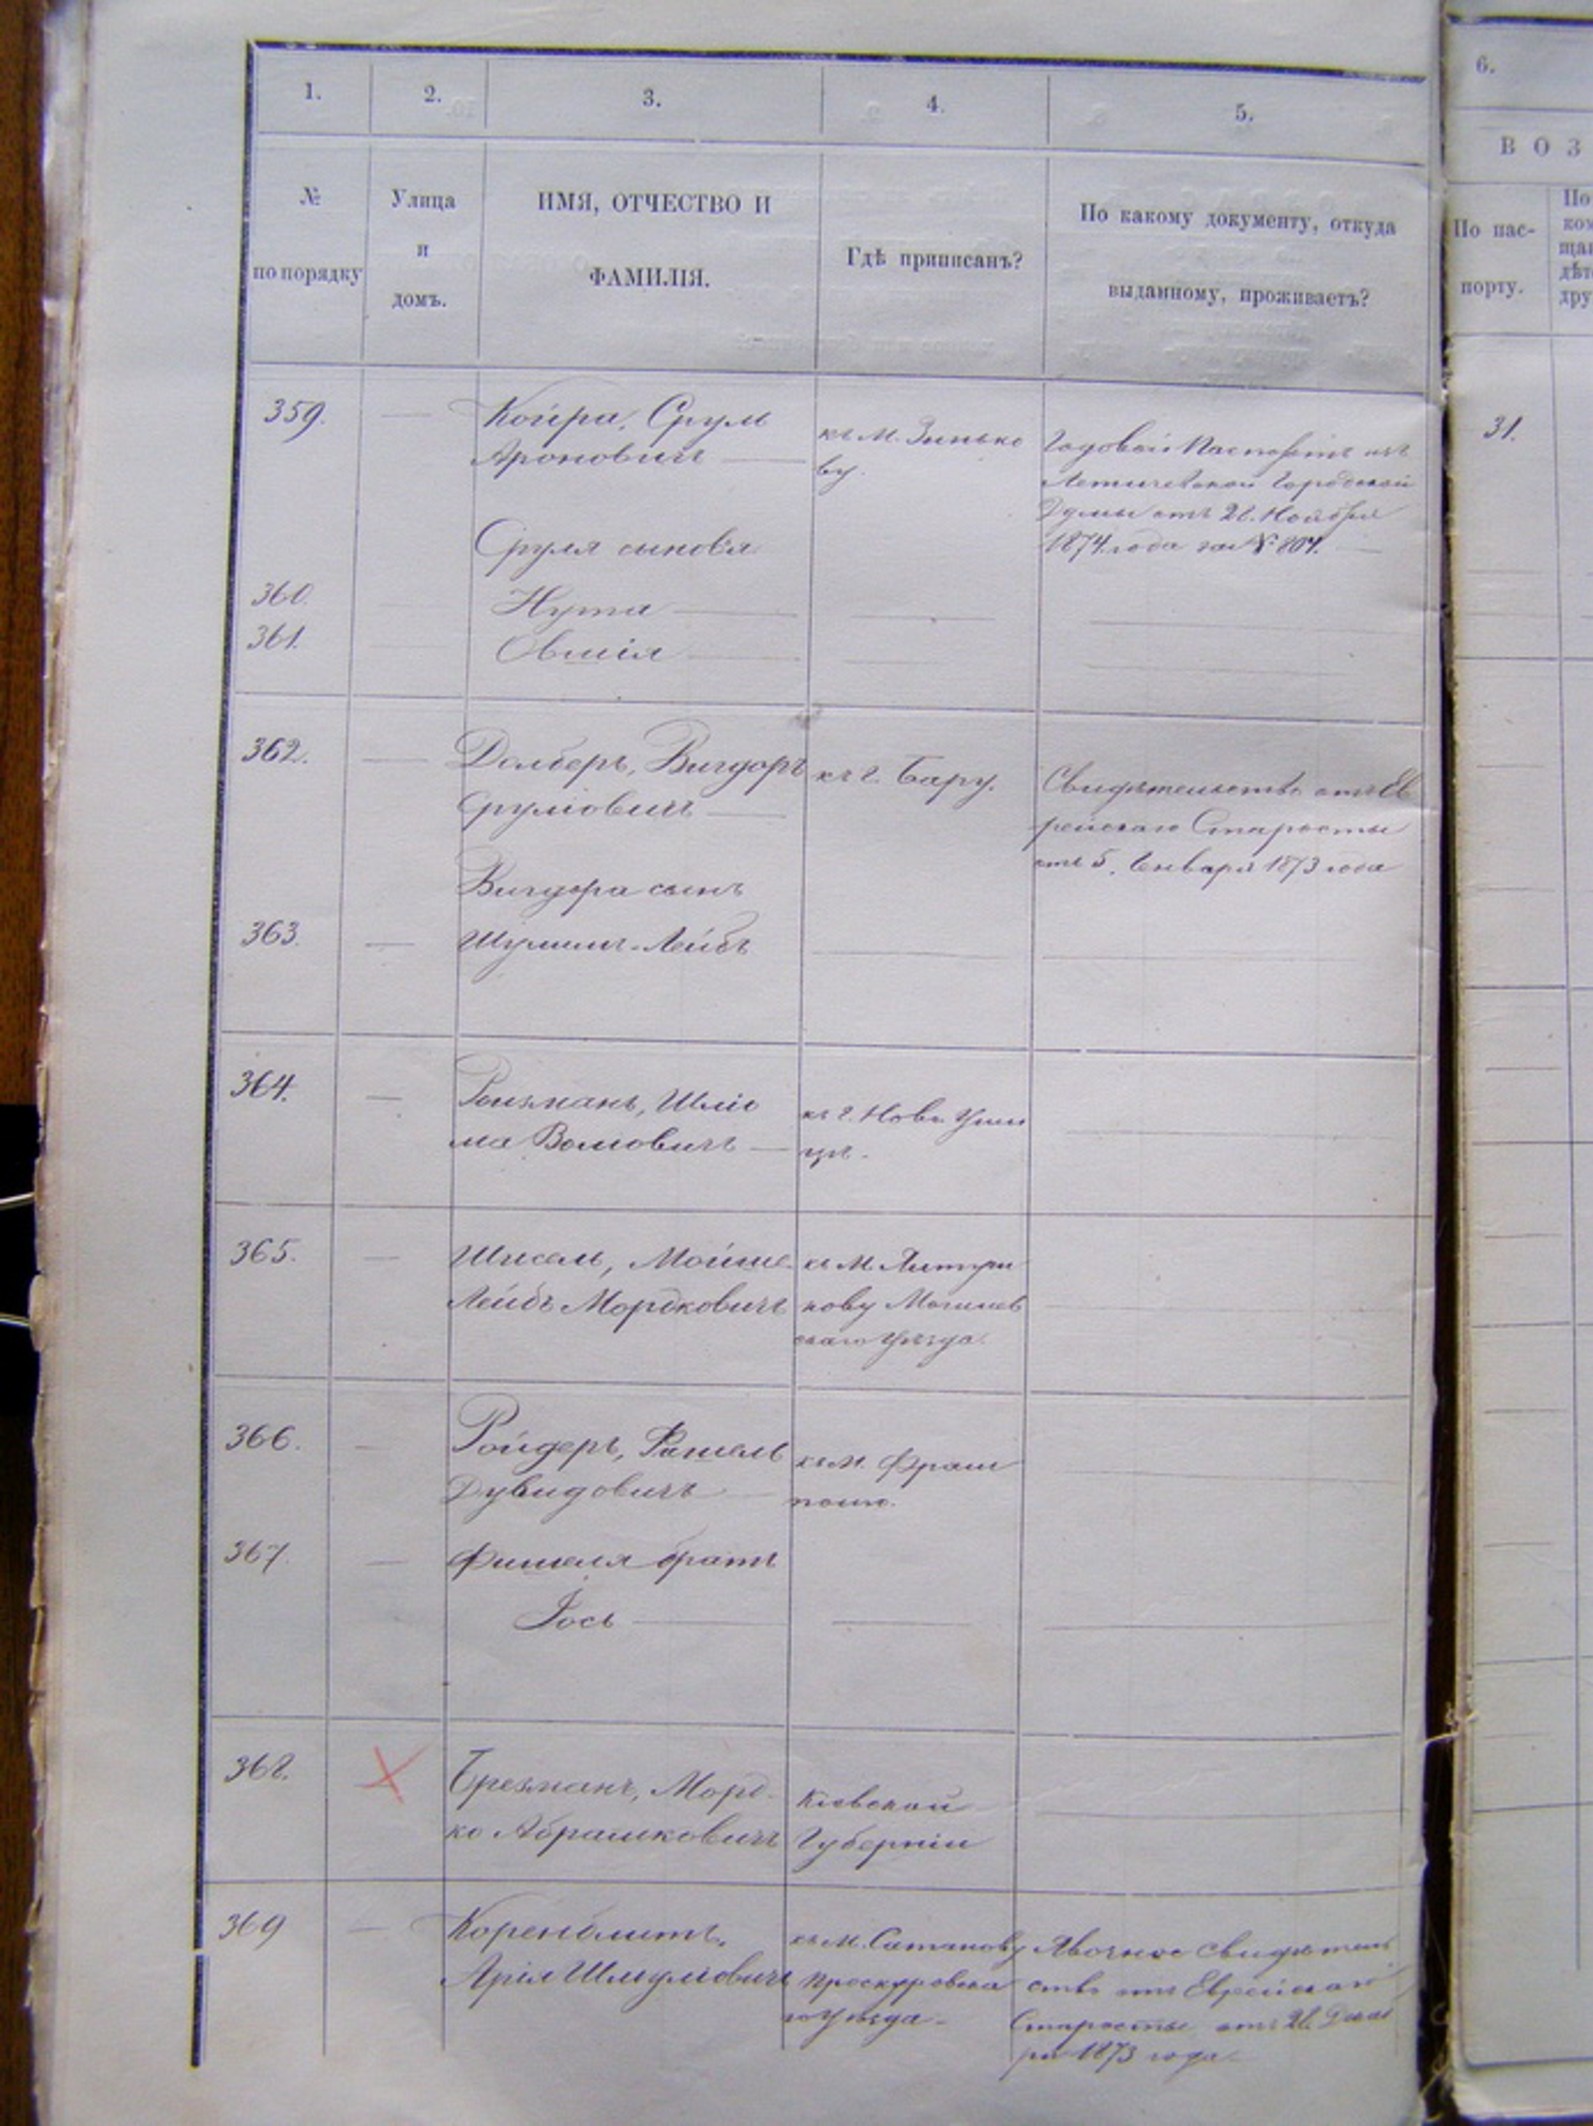 1. 2. 3. 4. 5. 6.
№ по порядку
Улица и домъ.
ИМЯ, ОТЧЕСТВО И ФАМИЛІЯ.
Гдѣ приписанъ?
По какому документу, откуда выданному, проживаетъ?
ВОЗ
По пас-
порту.
359.
Койра, Срулъ
Ароновичъ
къ м. Зинько
ву.
Годовой паспортъ изъ
Летичевской Городской
Думы отъ 28. Ноября
1874 года за № 804.
31.
Сруля сыновья
360.
Нута
361.
Овшія
362.
Долберъ, Вигдоръ
Сруловичъ
къ г. Бару.
Свидѣтельство отъ Ев
рейскаго Старосты
отъ 5. Января 1873 года
Вигдора сынъ
363.
Шулимъ-Лейбъ
364.
Ройзманъ, Шлио
ма Волковичъ
къ г. Нов. Уши
цѣ.
365.
Шисель, Мойше
Лейбъ Мордковичъ
къ м.
кову Могилев
скаго Уѣзда.
366.
Ройдеръ, Фишель
Дувидовичъ
къ м. Фрам
полю.
367.
Фишеля братъ
Іось
368.
Брезманъ, Морд-
ко Абрамковичъ
Кіевской
Губерніи
369
Коренблитъ,
Арія Шмулевичъ
къ м. Сатанову
Проскуровска
го Уѣзда.
Явочное свидѣтель
ство отъ Еврейскаго
Старосты отъ 28. Декаб
ря 1873 года